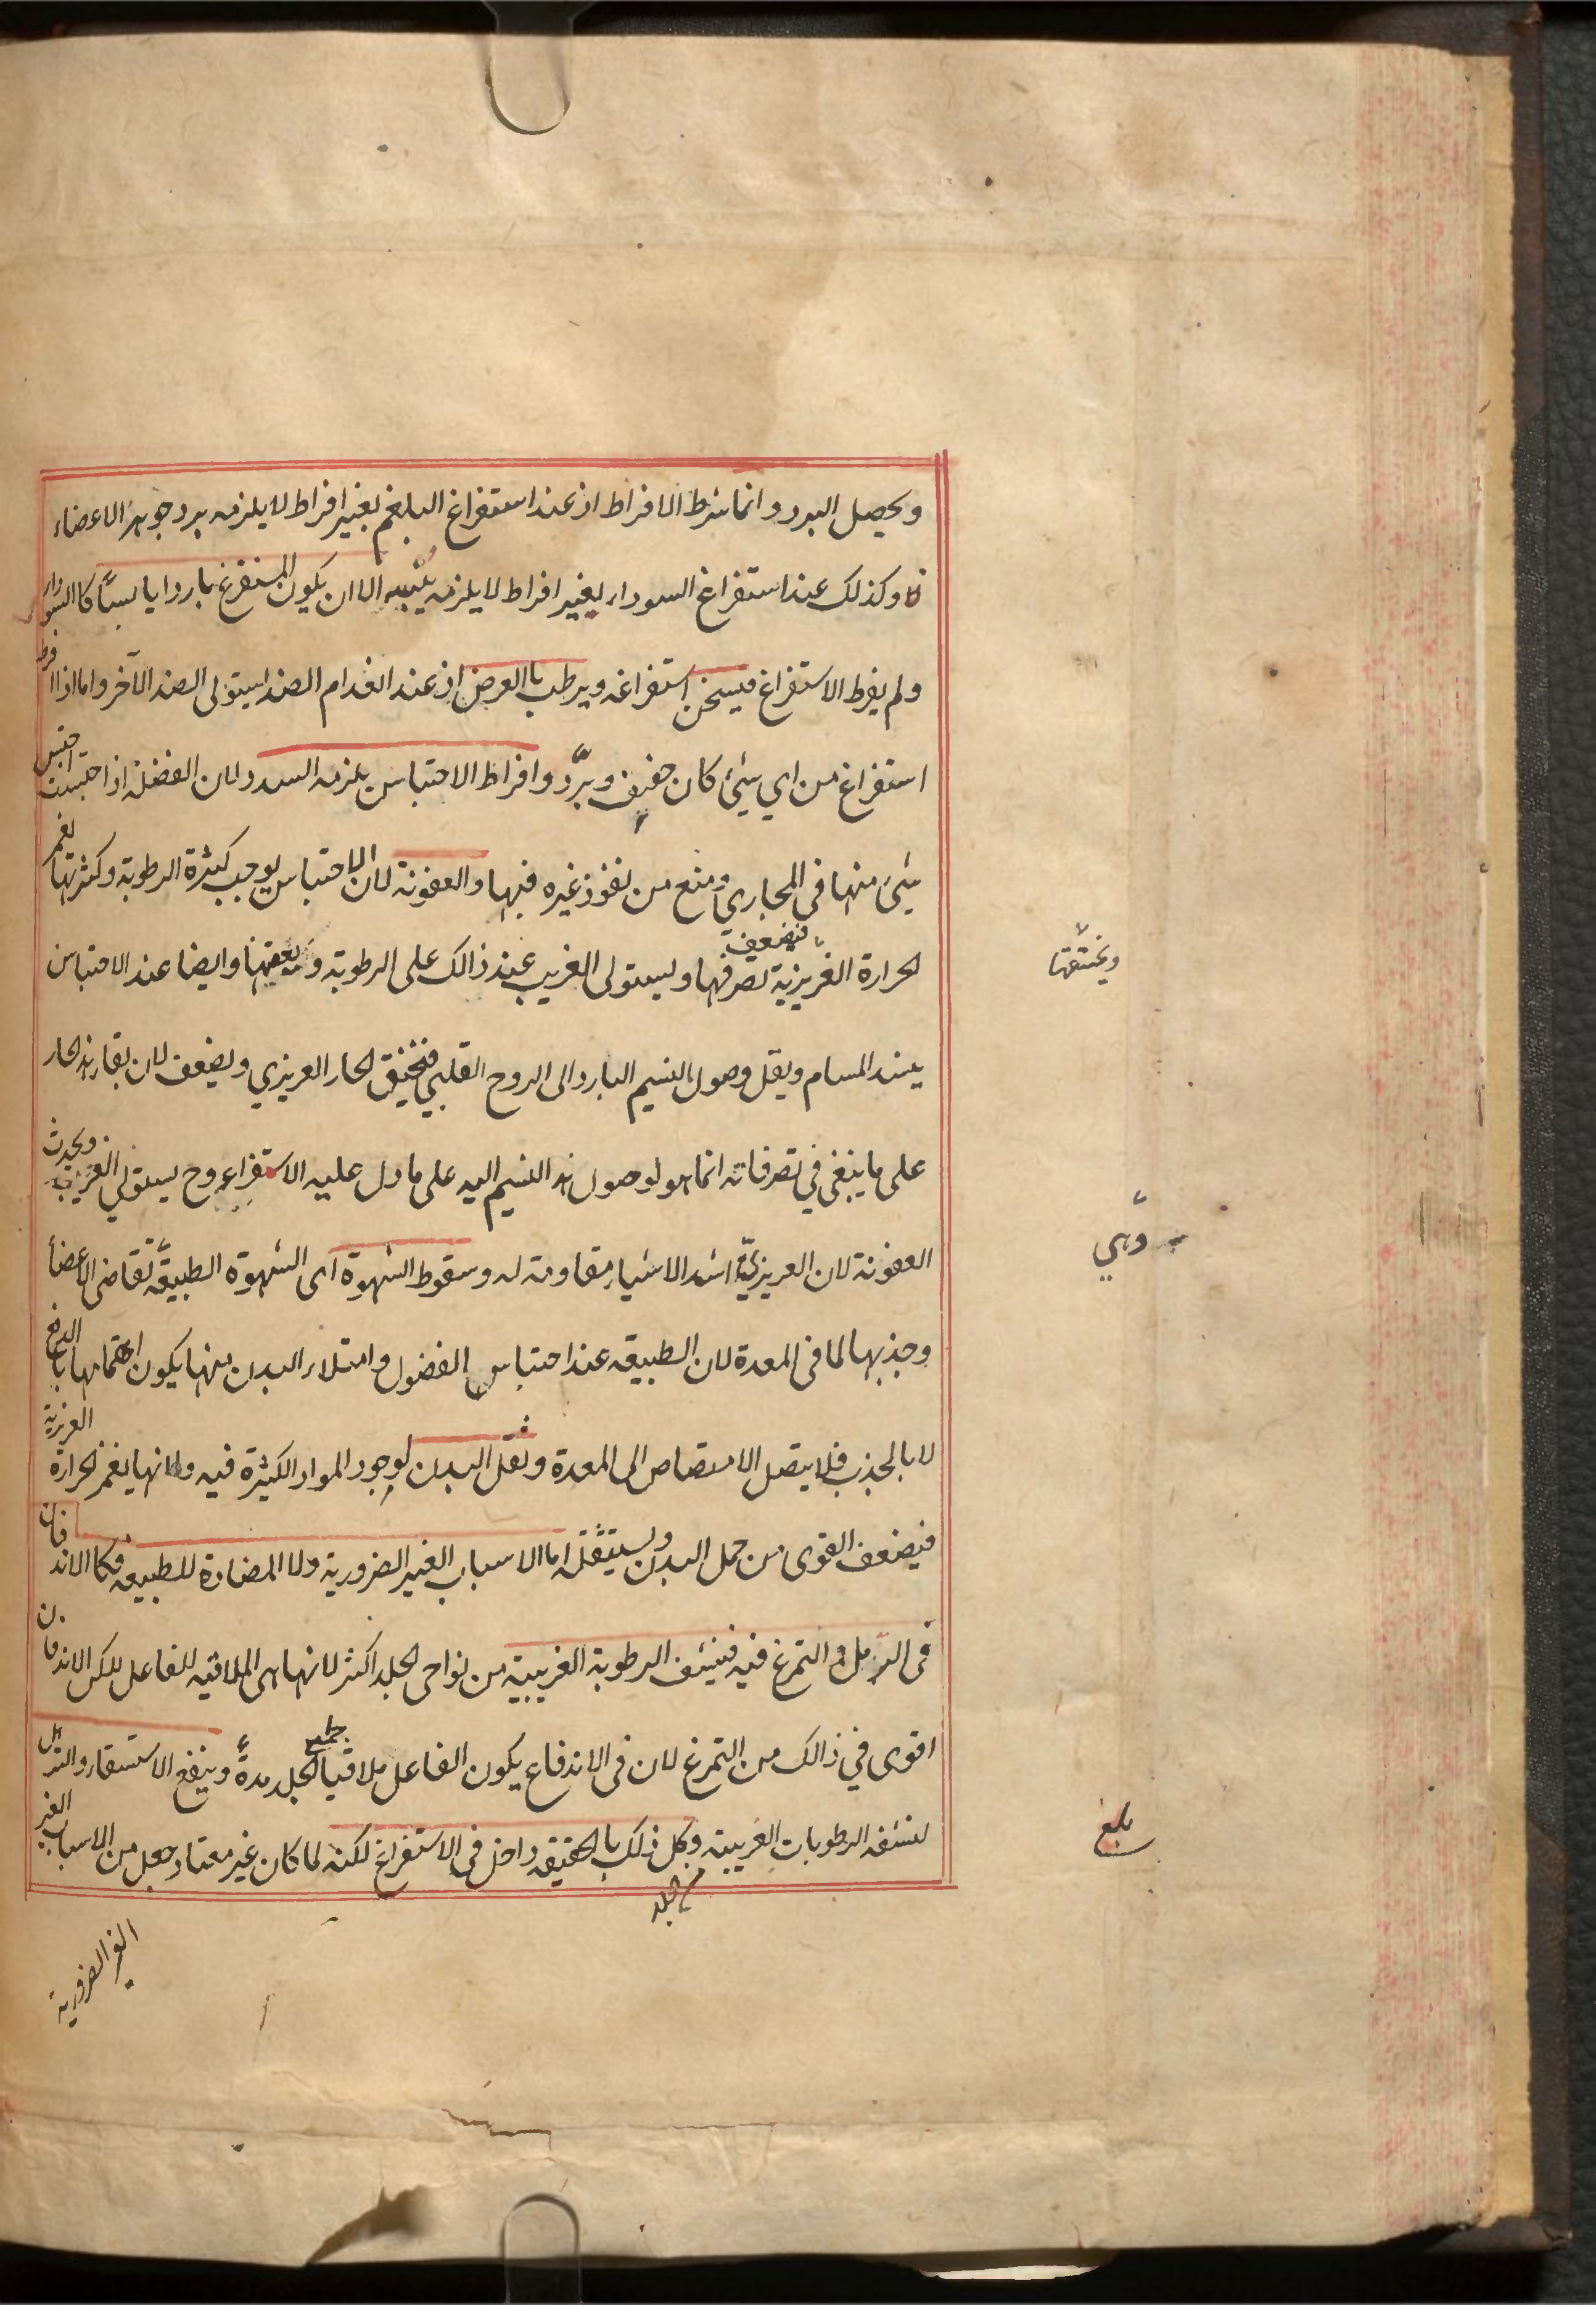 ويحصل البرد وانما شرط الافراط اذ عند استفراغ البلغم بغير افراط لا يلزمه برد جوهر الاعضاء
وكذلك عند استفراغ السوداء بغير افراط لا يلزمه يبسه الا ان يكون المستفرغ باردا يابسا كاالسوداء
ولم يفرط الاستفراغ فيسخن استفراغه ويرطب باالعرض اذ عند انعدام الضد استولى الضد الآخر واما اذا افرط
استفراغ من اي شئ كان جفف وبرّد وافراط الاحتباس يلزمه السدد لان الفضلة اذا احتبست احتبس
شئ منها في المجاري ومنع من نفوذ غيره فيها والعفونة لان الاحتباس يوجب كثرة الرطوبة وكثرتها يغمر
الحرارة الغريزية فيضعف تصرفها ويستولى الغريب عند ذالك على الرطوبة ويعفنها وايضا عند الاحتباس
ويخنقها
ينسد المسام ويقل وصول النسيم البارد الى الروح القلبي فيختنق الحار الغريزي ويضعف لان بقاء هذا الحار
على ما ينبغي في تصرفاته انما هو لوصول هذا النسيم اليه على ما دل عليه الاستقراء وح يستولي الغريب ويحدث
العفونة لان الغريزية اشد الاشياء مقاومة له وسقوط الشهوة اى الشهوة الطبيعية تقاضى الاعضأ
وهي
وجذبها لما فى المعدة لان الطبيعه عند احتباس الفضول وامتلاء البدن منها يكون اهتمامها باالدفع
لا باالجذب فلا يتصل الامتصاص الى المعدة وثقل البدن لوجود المواد الكثيرة فيه ولانها يغمر الحرارة الغريزية
فيضعف القوى من حمل البدن ويستثقله اما الاسباب الغير الضرورية ولا المضادة للطبيعه فكاالاندفان
فى الرمل والتمرغ فيه فينشف الرطوبة الغريبية من نواحى الجلد اكثر لانها هى الملاقيه للفاعل لكن الاندفان
اقوى في ذالك من التمرغ لان فى الاندفاع يكون الفاعل ملاقيا جميع الجلد مدةً وينفع الاستسقاء والترهل
لنشفه الرطوبات الغريبية وكل ذلك باالحقيقه داخل فى الاستفراغ لكنه لما كان غير معتاد جعل من الاسباب الغير
بلغ
الغير الضرورية